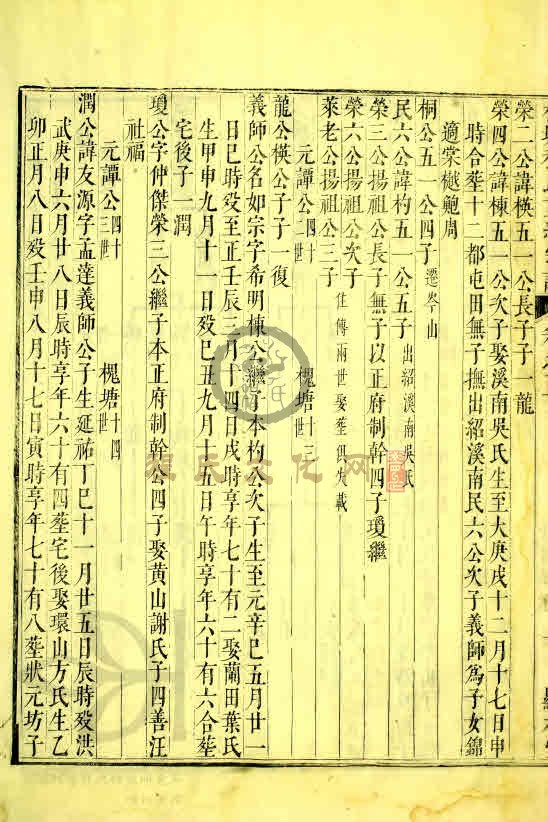 榮二公諱楧五一公長子子一龍
榮四公諱棟五一公次子娶溪南吳氏生至大庚戌十二月十七日申
時合塟十二都屯田無子撫出紹溪南民六公次子義師爲子女錦
適棠樾鮑周
桐公五一公四子遷岑山
民六公諱杓五一公五子出紹溪南吳氏
榮三公揚祖公長子無子以正府制幹四子瓊繼
榮六公揚祖公次子
萊老公揚祖公三子 仕傳兩世娶塟俱失載
元譚公四十二世 槐塘十三世
龍公楧公子子一復
義師公名如宗字希明棟公繼子本杓公次子生至元辛巳五月廿一
日巳時歿至正壬辰三月十四日戌時享年七十有二娶蘭田葉氏
生甲申九月十一日歿己丑九月十五日午時享年六十有六合塟
宅後子一潤
瓊公字仲傑榮三公繼子本正府制幹公四子娶黄山謝氏子四善汪
社福
元譚公四十三世 槐塘十四世
潤公諱友源字孟達義師公子生延祐丁巳十一月廿五日辰時歿洪
武庚申六月廿八日辰時享年六十有四塟宅後娶環山方氏生乙
卯正月八日歿壬申八月十七日寅時享年七十有八塟狀元坊子
程氏文化网